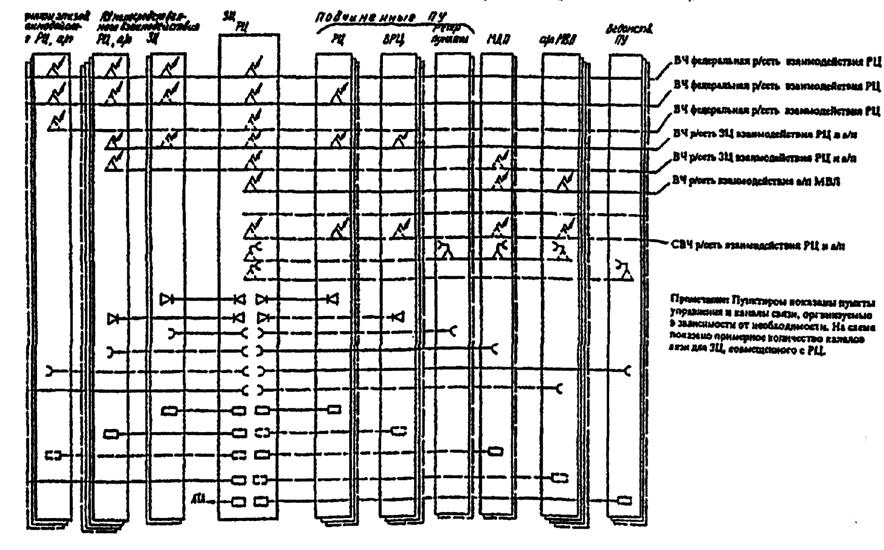 ПУ непосредствен-
ного взаимодействия
РЦ, а/п
РЦ, а/п
ЗЦ
ЗЦ
РЦ
Подчиненные ПУ
РЦ
ВРЦ
пункты
МДП
а/п МВЛ
Ведомств.
ПУ
ВЧ федеральная р/сеть взаимодействия РЦ
ВЧ федеральная р/сеть взаимодействия РЦ
ВЧ федеральная р/сеть взаимодействия РЦ
ВЧ р/сеть ЗЦ взаимодействия РЦ и а/п
ВЧ р/сеть ЗЦ взаимодействия РЦ и а/п
ВЧ р/сеть взаимодействия а/п МВЛ
СВЧ р/сеть взаимодействия РЦ и а/п
Примечание: Пунктиром показаны пункты
управления и каналы связи, организуемые
в зависимости от необходимости. На схеме
показано примерное количество каналов
связи для ЗЦ, совмещенного с РЦ.